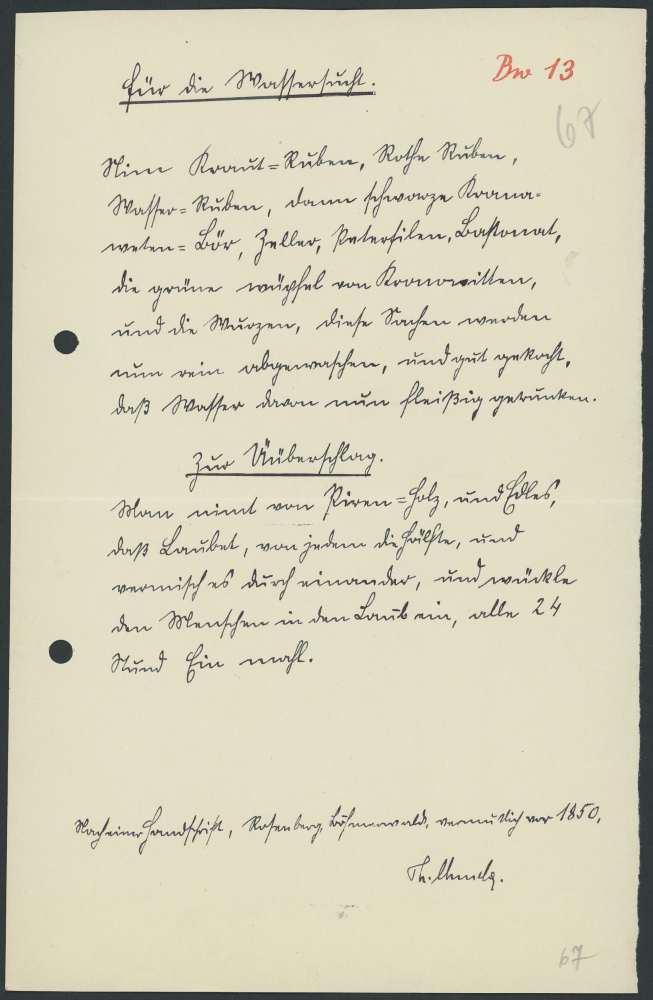 Für die Wassersucht.
Bw 13
67
Nim Kraut=Ruben, Rothe Ruben,
Wasser=Ruben, dann schwarze Krana-
weten=Bör, Zeller, Petersilen, Bastonat,
die grüne wüpfel von Kronowitten,
und die Wurzen, diese Sachen werden
nun rein abgewaschen, und gut gekocht,
daß Wasser davon nun fleißig getrunken.
Zur Üüberschlag.
Man nimt von Piren=Holz, und Edles,
daß Laubet, von jedem die Hälfte, und
vermisch es durch einander, und wückle
den Menschen in den Laub ein, alle 24
Stund Ein mahl.
Nach einer Handschrift, Rosenberg, Böhmerwald, vermutlich vor 1850,
Th.
67